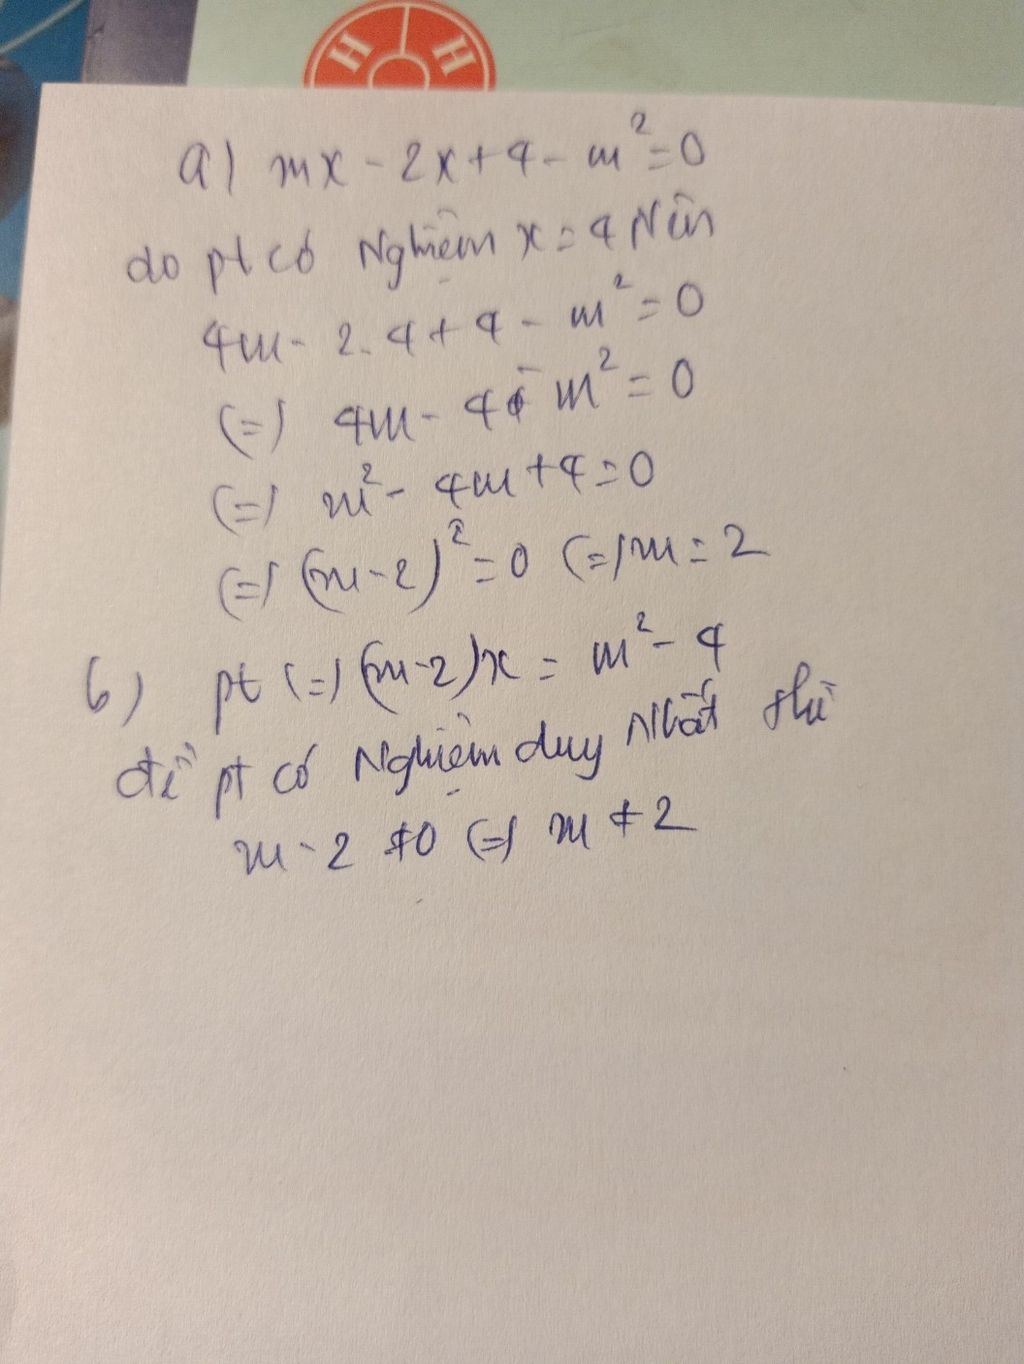 H H
a) mx - 2x + 4 - m² = 0
do pt có Nghiệm x = 4 Nên
4m - 2.4 + 4 - m² = 0
(=) 4m - 4 - m² = 0
(=) m² - 4m + 4 = 0
(=) (m - 2)² = 0 (=) m = 2
b) pt (=) (m-2)x = m² - 4
để pt có Nghiệm duy Nhất thì
m - 2 ≠ 0 (=) m ≠ 2